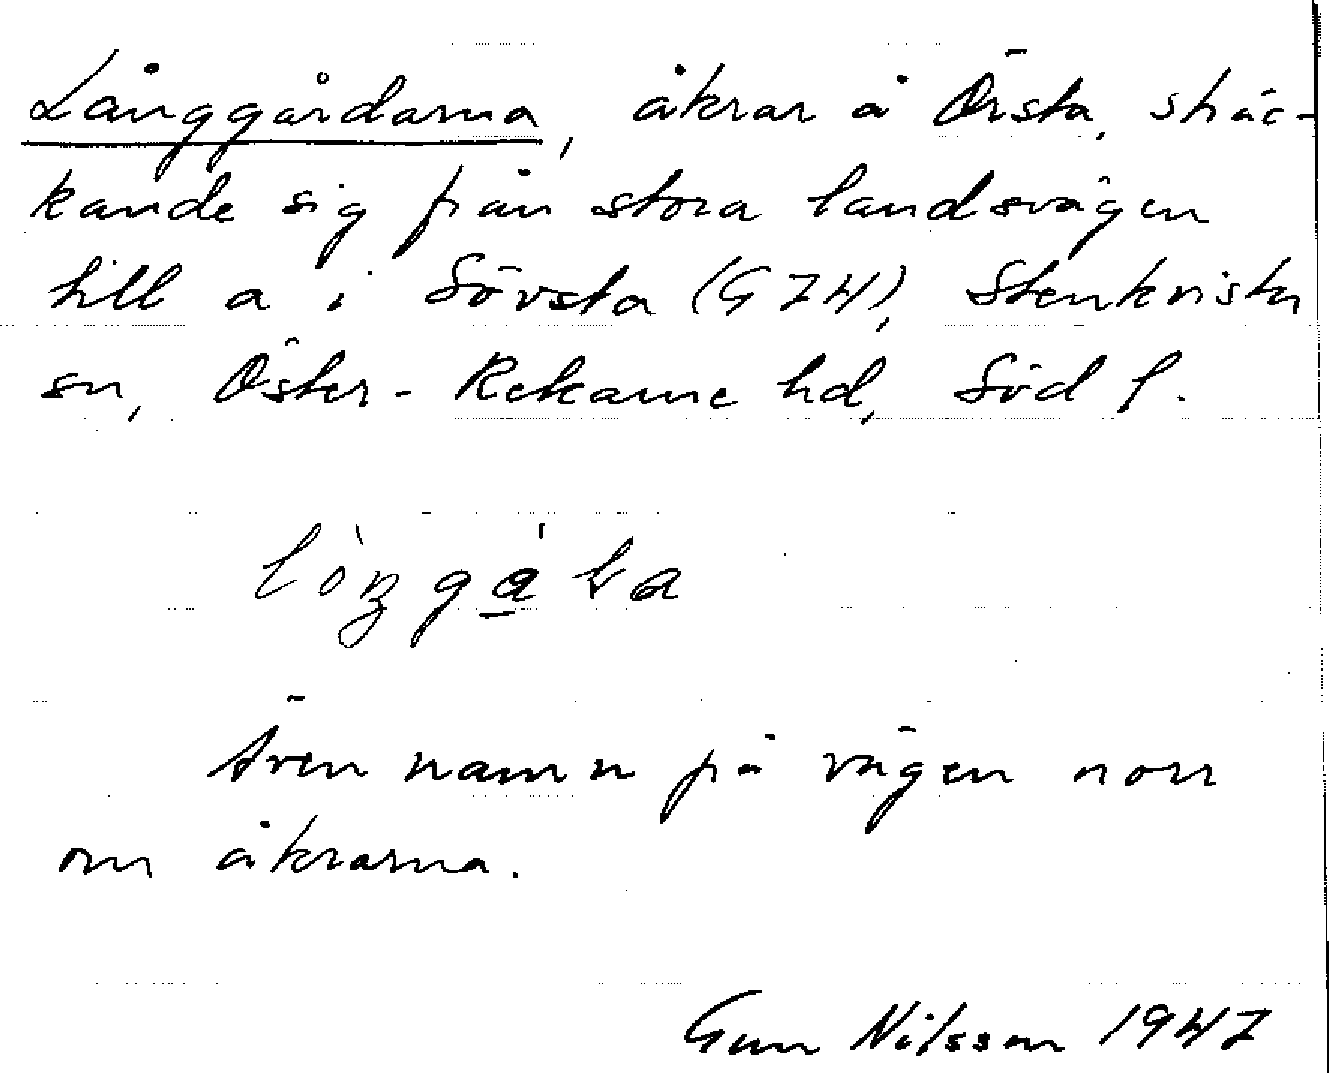 Långgårdarna, åkrar å Örsta, sträc-
kande sig från stora landsvägen
till a i Sörsta (G 74), Stenkvista
sn, Öster-Rekarne hd, Söd l.
Även namn på vägen norr
om åkrarna.
Gun Nilsson 1947